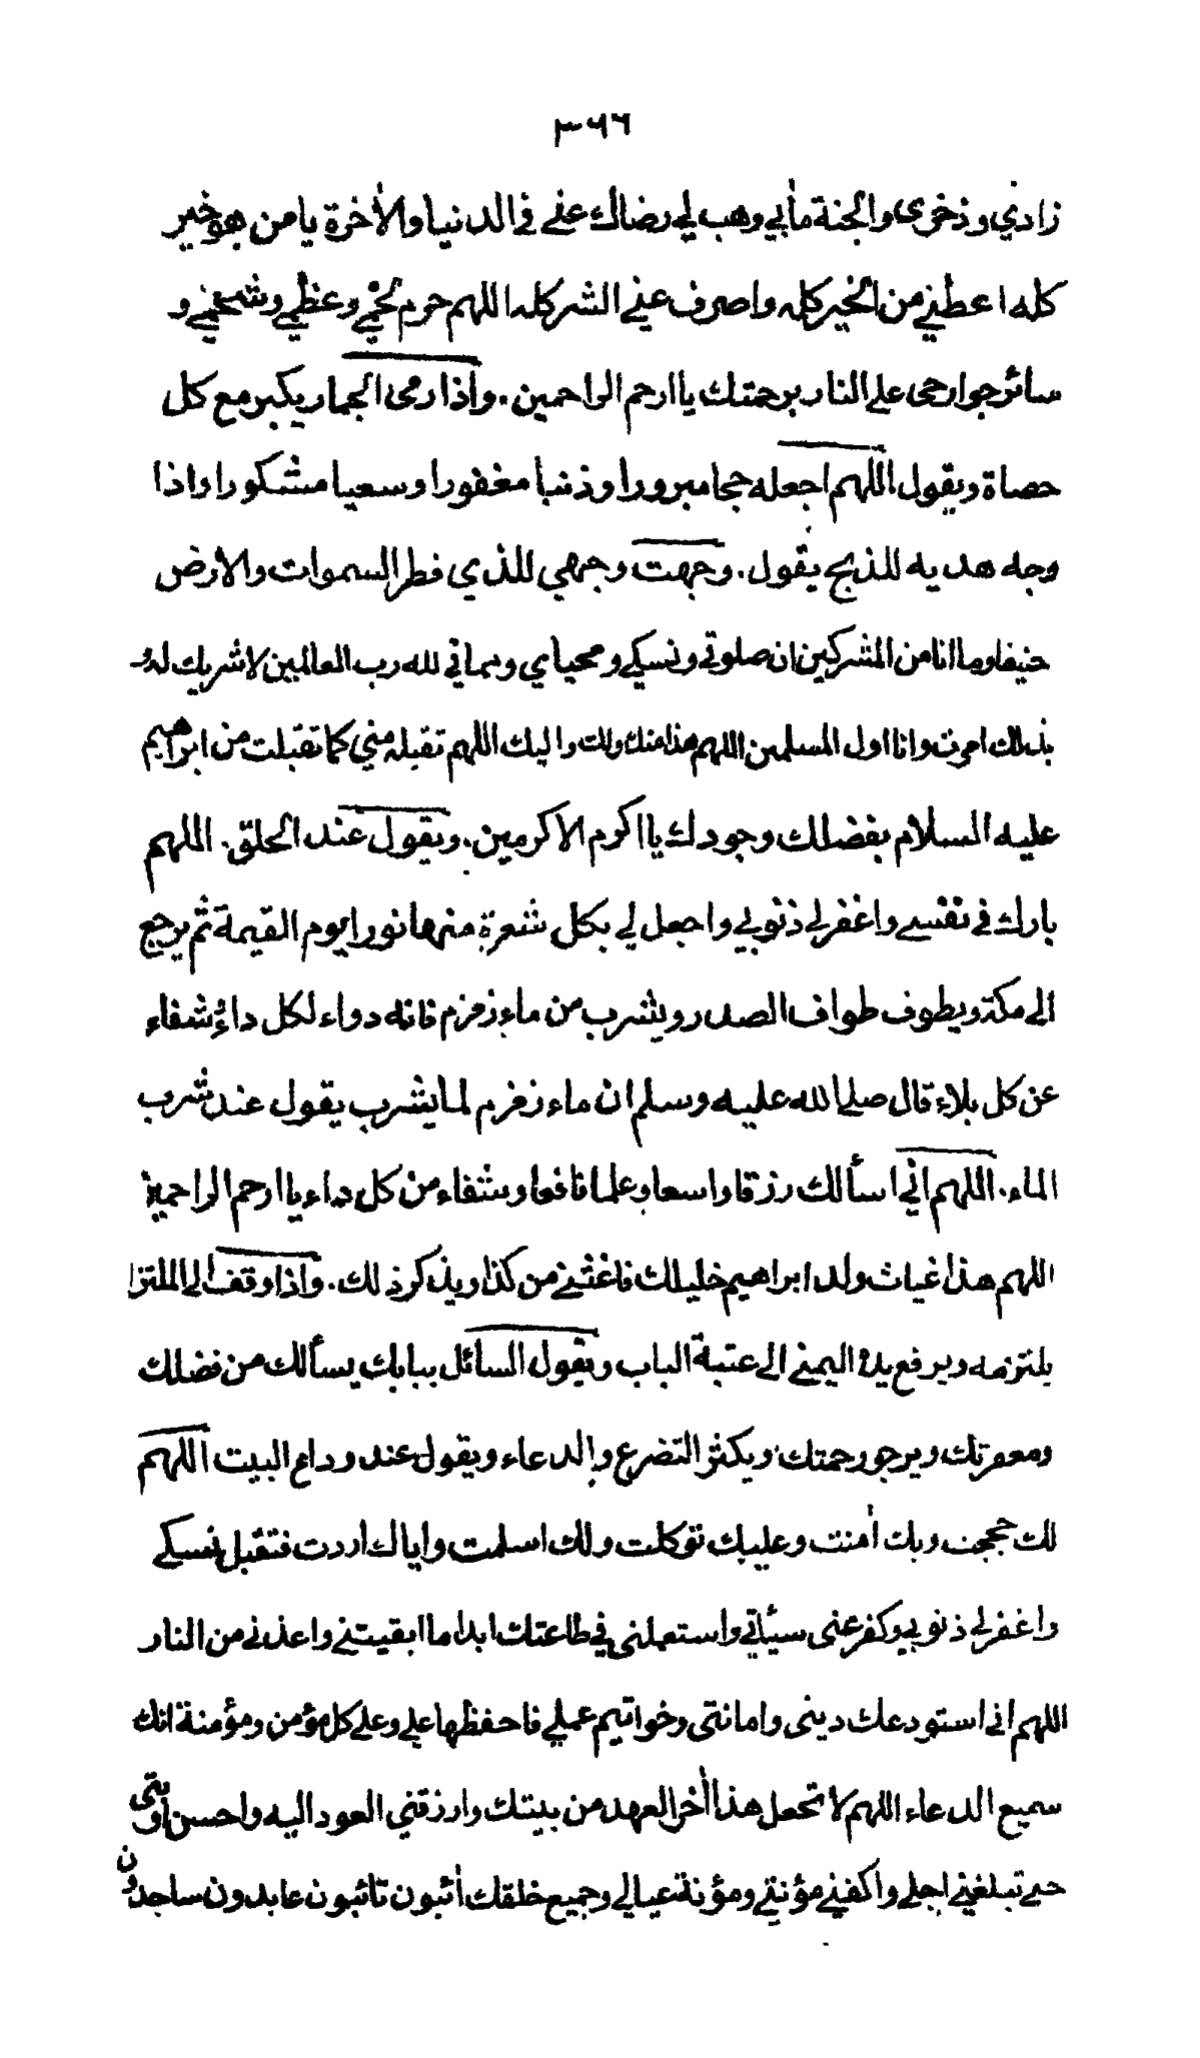 ٣٩٦
زادي وذخرى والجنة مأبي وهب لي رضاك عني في الدنيا والأخرة يا من هو خير
كله اعطني من الخير كله واصرف عني الشر كله اللهم حرم لحمي وعظمي وشحمي و
سائر جوارحى على النار برحمتك يا ارحم الراحمين. واذا رمى الجمار يكبر مع كل
حصاة ويقول اللهم اجعله حجا مبرورا وذنبا مغفورا وسعيا مشكورا واذا
وجه هديه للذبح يقول. وجهت وجهي للذي فطر السموات والأرض
حنيفا وما انا من المشركين ان صلوتي ونسكي ومحياي ومماتي لله رب العالمين لا شريك له و
بذلك امرت وانا اول المسلمين اللهم هذا منك ولك واليك اللهم تقبله مني كما تقبلت من ابراهيم
عليه السلام بفضلك وجودك يا اكرم الاكرمين. ويقول عند الحلق. اللهم
بارك في نفسي واغفر لي ذنوبي واجعل لي بكل شعرة منها نورا يوم القيمة ثم يرجع
الى مكة ويطوف طواف الصدر ويشرب من ماء زمزم فانه دواء لكل داء وشفاء
عن كل بلاء قال صلى الله عليه وسلم ان ماء زمزم لما يشرب يقول عند شرب
الماء. اللهم اني اسألك رزقا واسعا وعلما نافعا وشفاء من كل داء يا ارحم الراحمين
اللهم هذا غياث ولد ابراهيم خليلك فاغثني من كذا ويذكر ذلك. واذا وقف الى الملتزم
يلتزمه ويرفع يده اليمنى الى عتبة الباب ويقول السائل ببابك يسألك من فضلك
ومعفرتك ويرجو رحمتك ويكثر التضرع والدعاء ويقول عند وداع البيت اللهم
لك حججت وبك أمنت وعليك توكلت ولك اسلمت واياك اردت فتقبل نسكي
واغفر لي ذنوبي وكفر عنى سيئاتي واستعملنى في طاعتك ابدا ما ابقيتني واعذني من النار
اللهم اني استودعك دينى وامانتى وخواتيم عملي فاحفظها علي وعلى كل مؤمن ومؤمنة انك
سميع الدعاء اللهم لا تجعل هذا أخر العهد من بيتك وارزقني العود اليه واحسن اوبتى
حتى تبلغني اجلي واكفني مؤنتي ومؤنة عيالي وجميع خلقك أئبون تائبون عابدون ساجدون